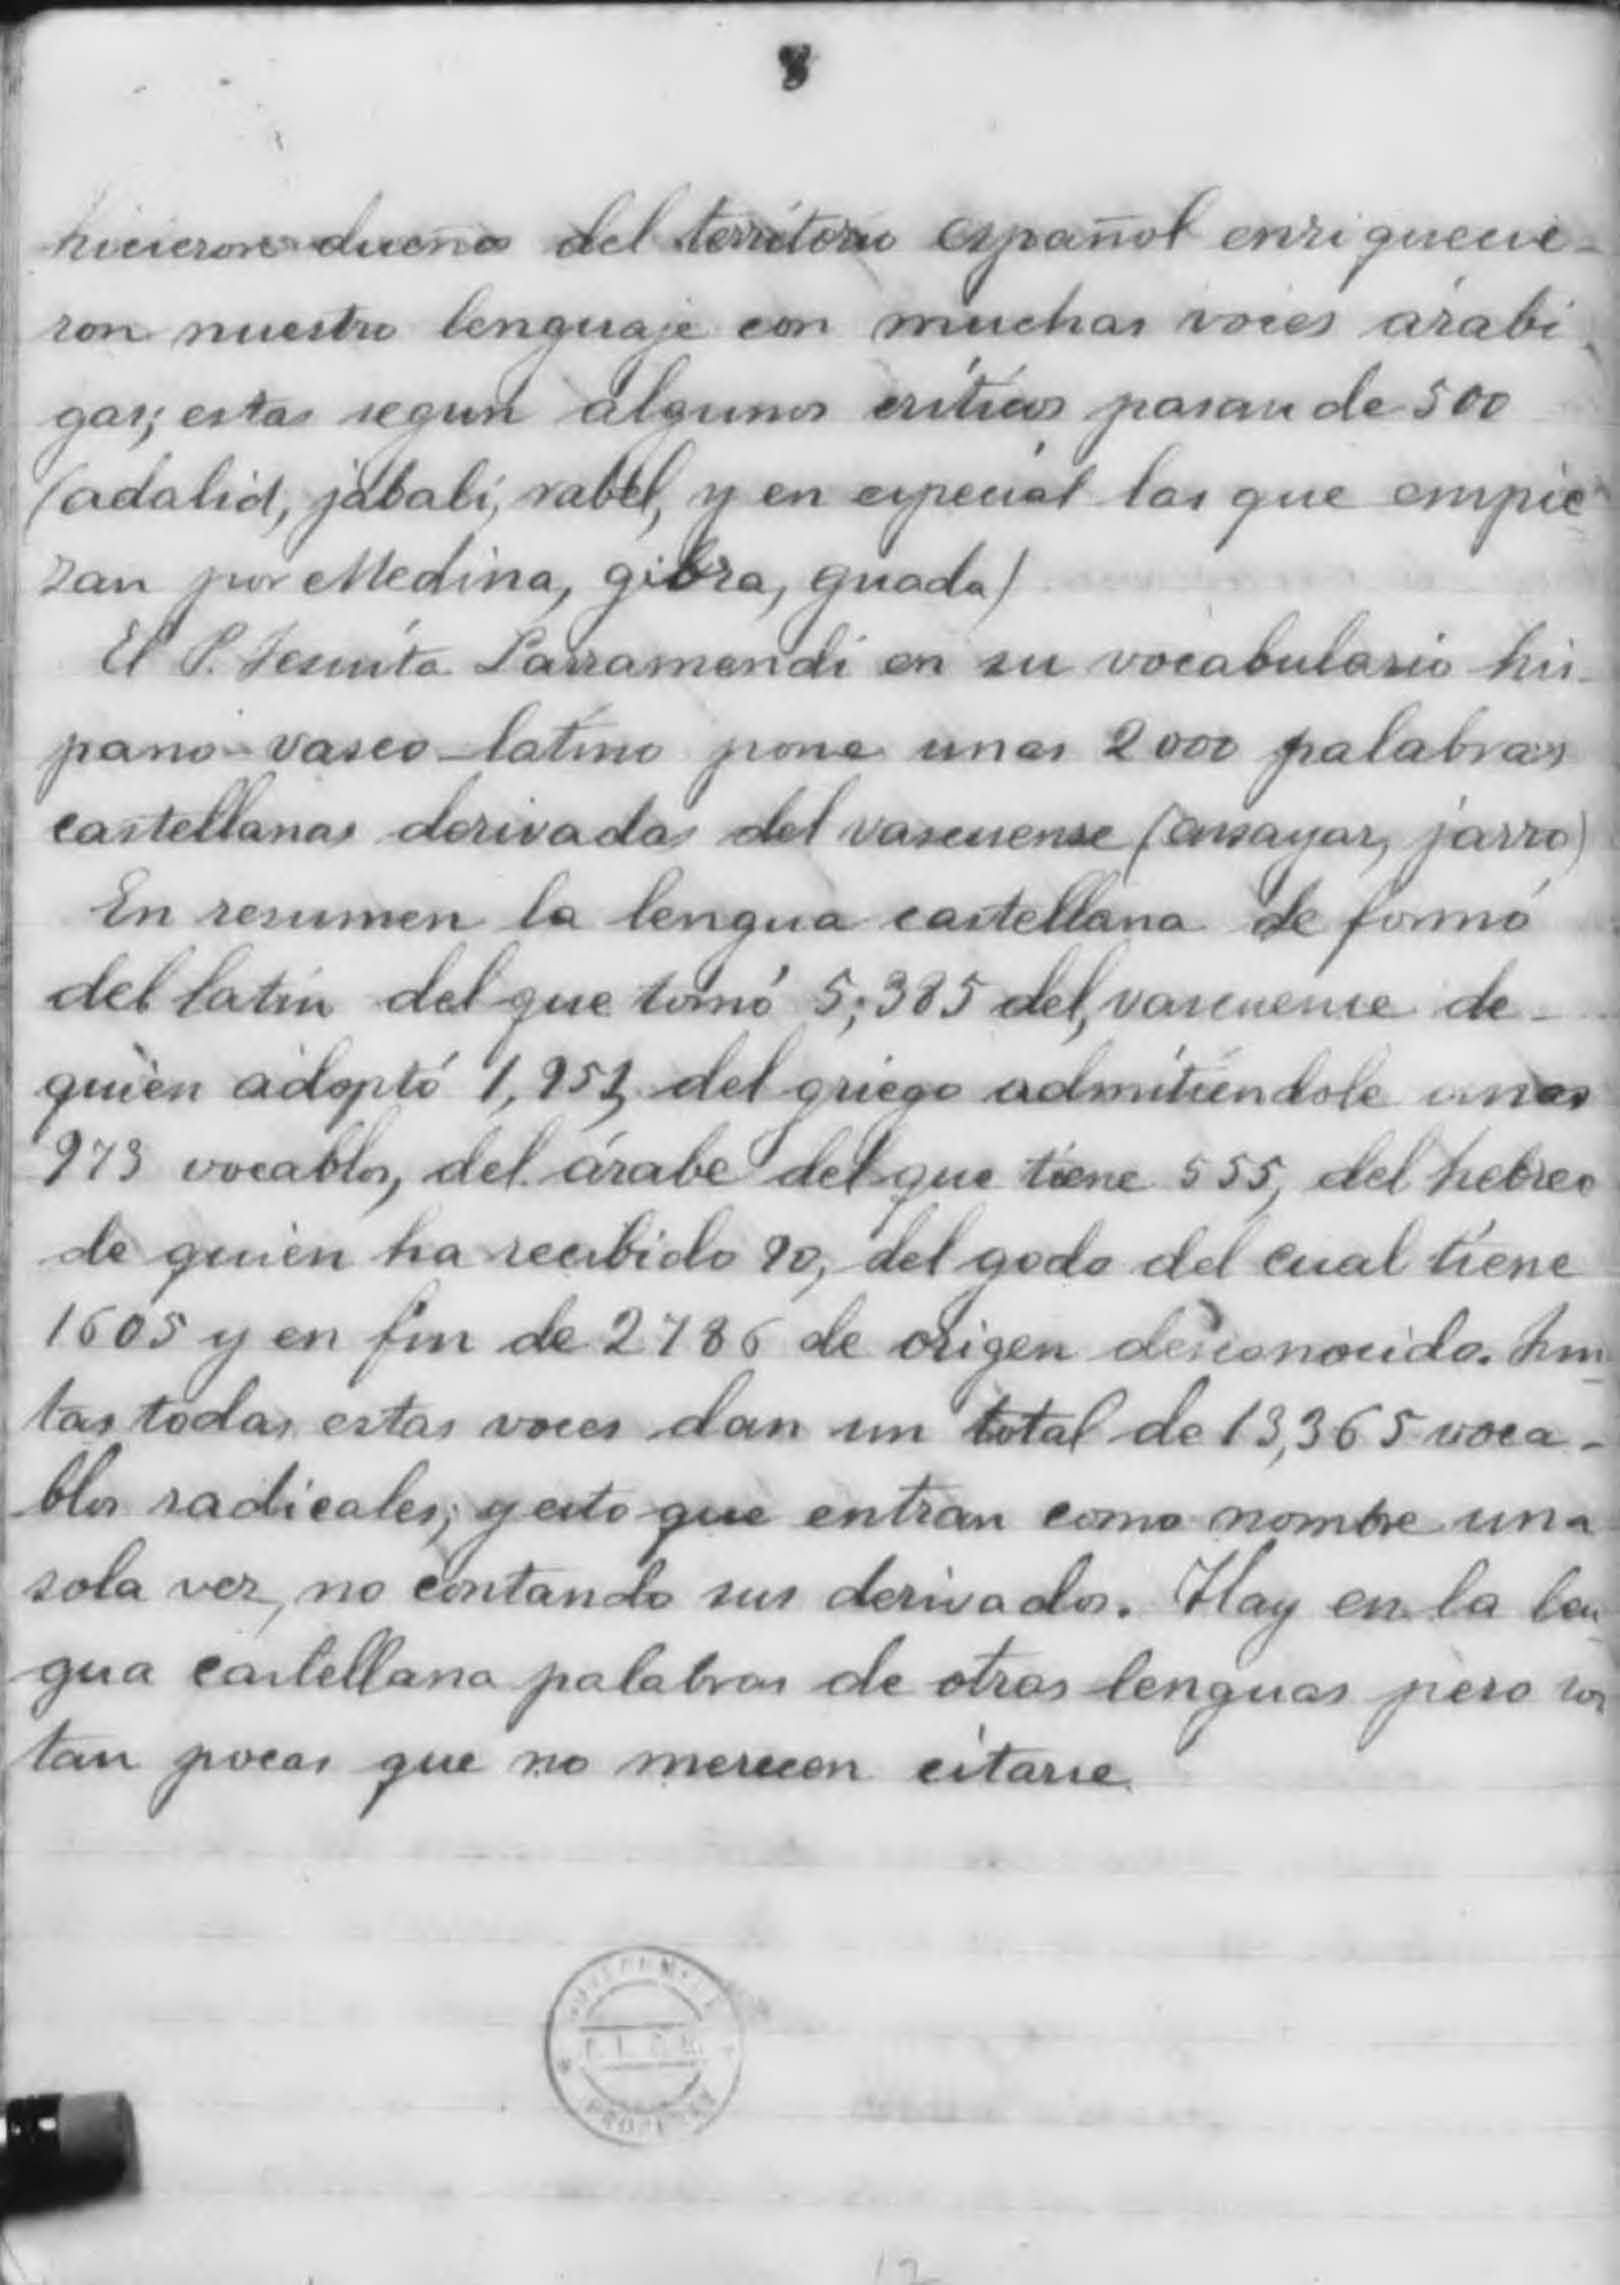 8
hicieron dueños del territorio español enriquecie-
ron nuestro lenguaje con muchas voces arábi
gas; estas segun algunos críticos pasan de 500
(adalid, jabalí, rabel, y en especial las que empie
zan por Medina, gibra, guada)
El P. Jesuita Larramendi en su vocabulario his-
pano-vasco-latino pone unas 2000 palabras
castellanas derivadas del vascuense (ensayar, jarro)
En resumen la lengua castellana de formó
del latín del que tomó 5,385 del, vascuense de-
quién adoptó 1,951, del griego admitiéndole unos
973 vocablos, del árabe del que tiene 555, del hebreo
de quien ha recibido 90, del godo del cual tiene
1605 y en fin de 2786 de origen desconocido. Jun
tas todas estas voces dan un total de 13,365 voca-
blos radicales; y esto que entran como nombre una
sola vez, no contando sus derivados. Hay en la len
gua castellana palabras de otras lenguas pero son
tan pocas que no merecen citarse